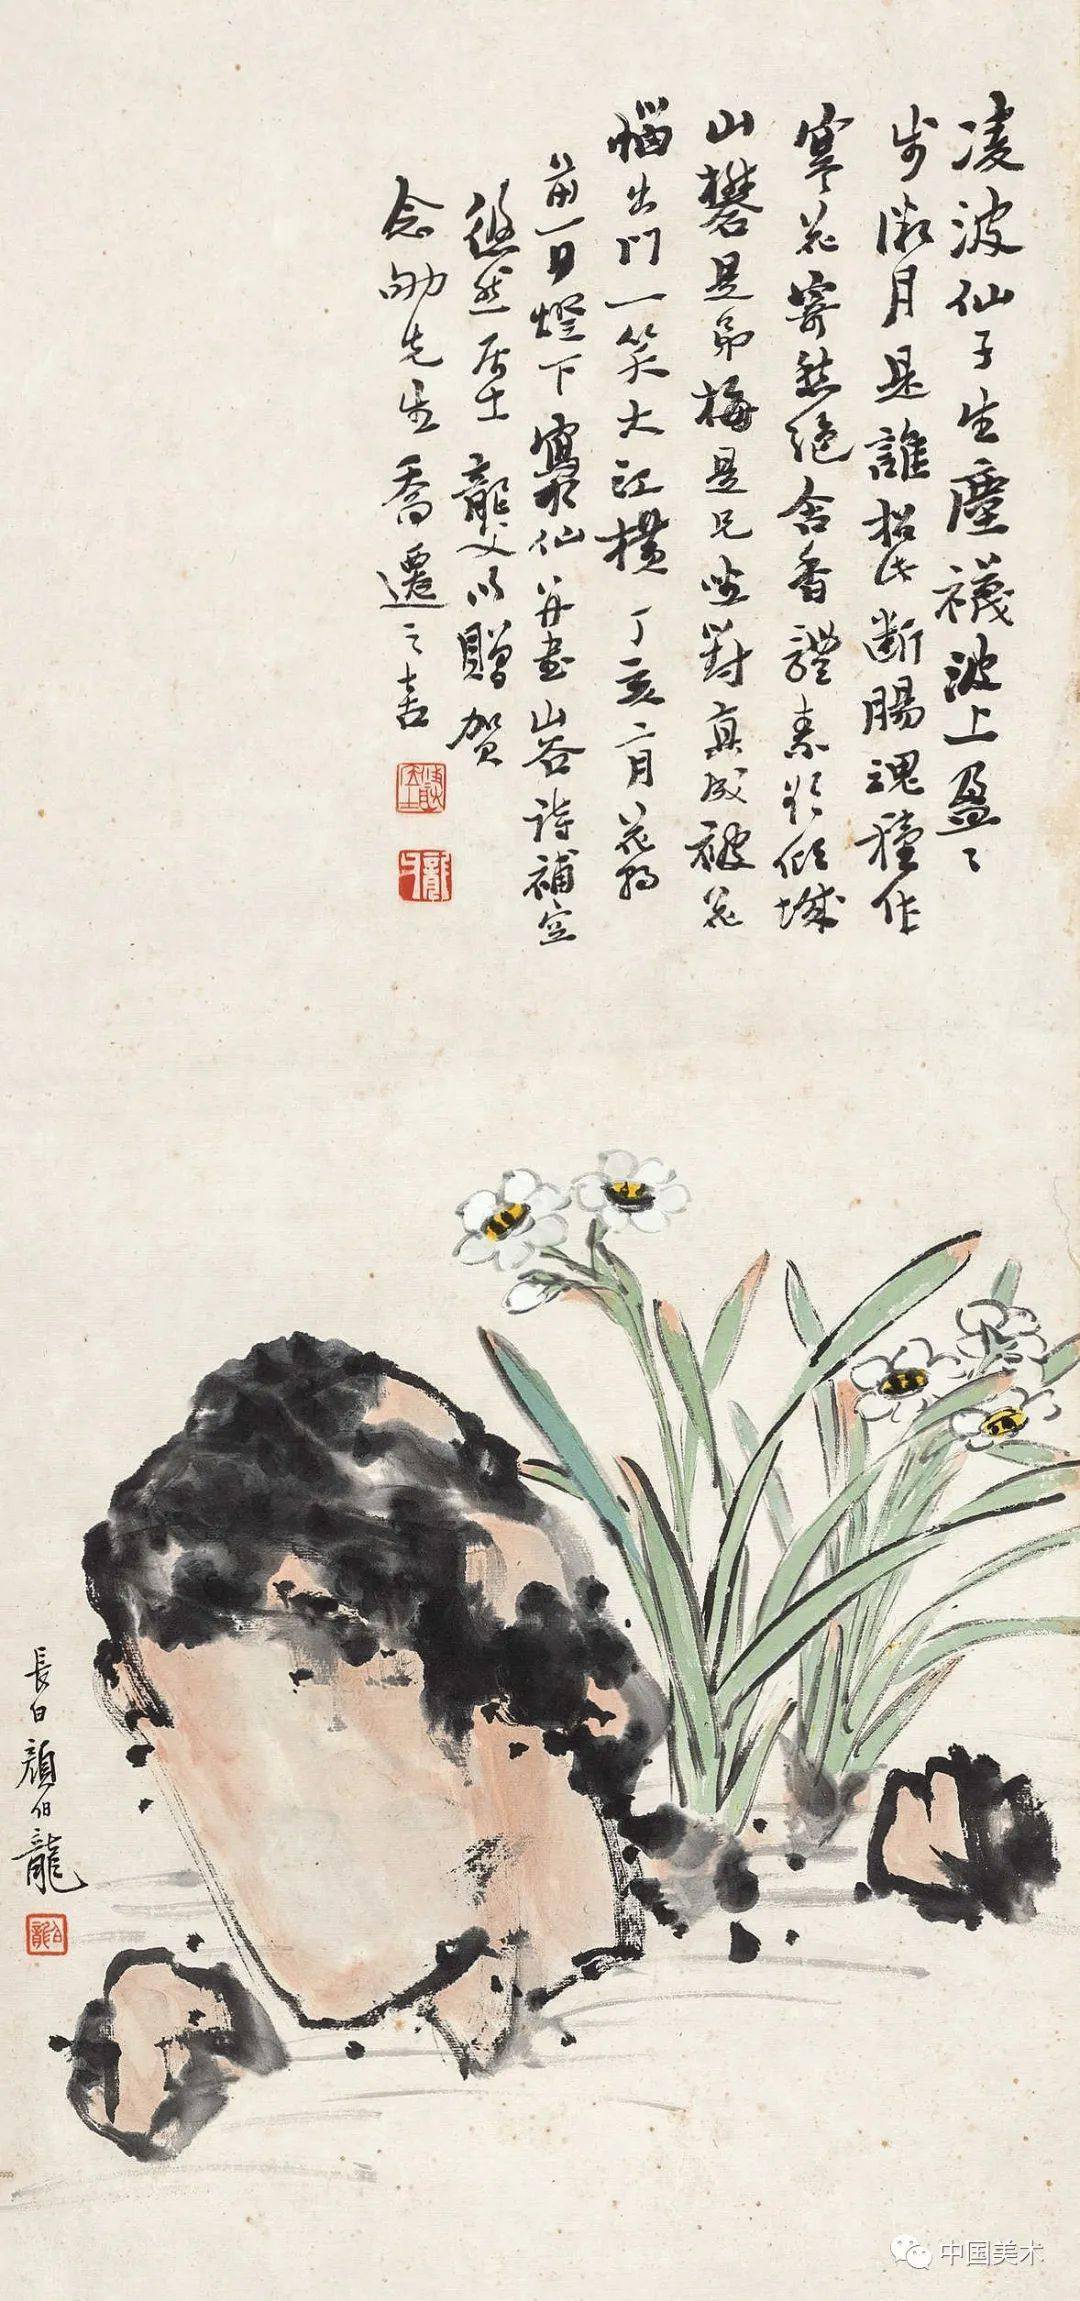 淩波仙子生塵襪波上盈〻
步微月是誰招此斷腸魂種作
寒花寄愁絕含香體素欲傾城
山礬是弟梅是兄坐對真成被花
惱出門一笑大江橫 丁亥二月花朝
前一日燈下寫水仙并書山谷詩補空
悠然居士龍父以贈賀
念劬先生喬遷之喜
長白顏伯龍
伯龍
中国美术